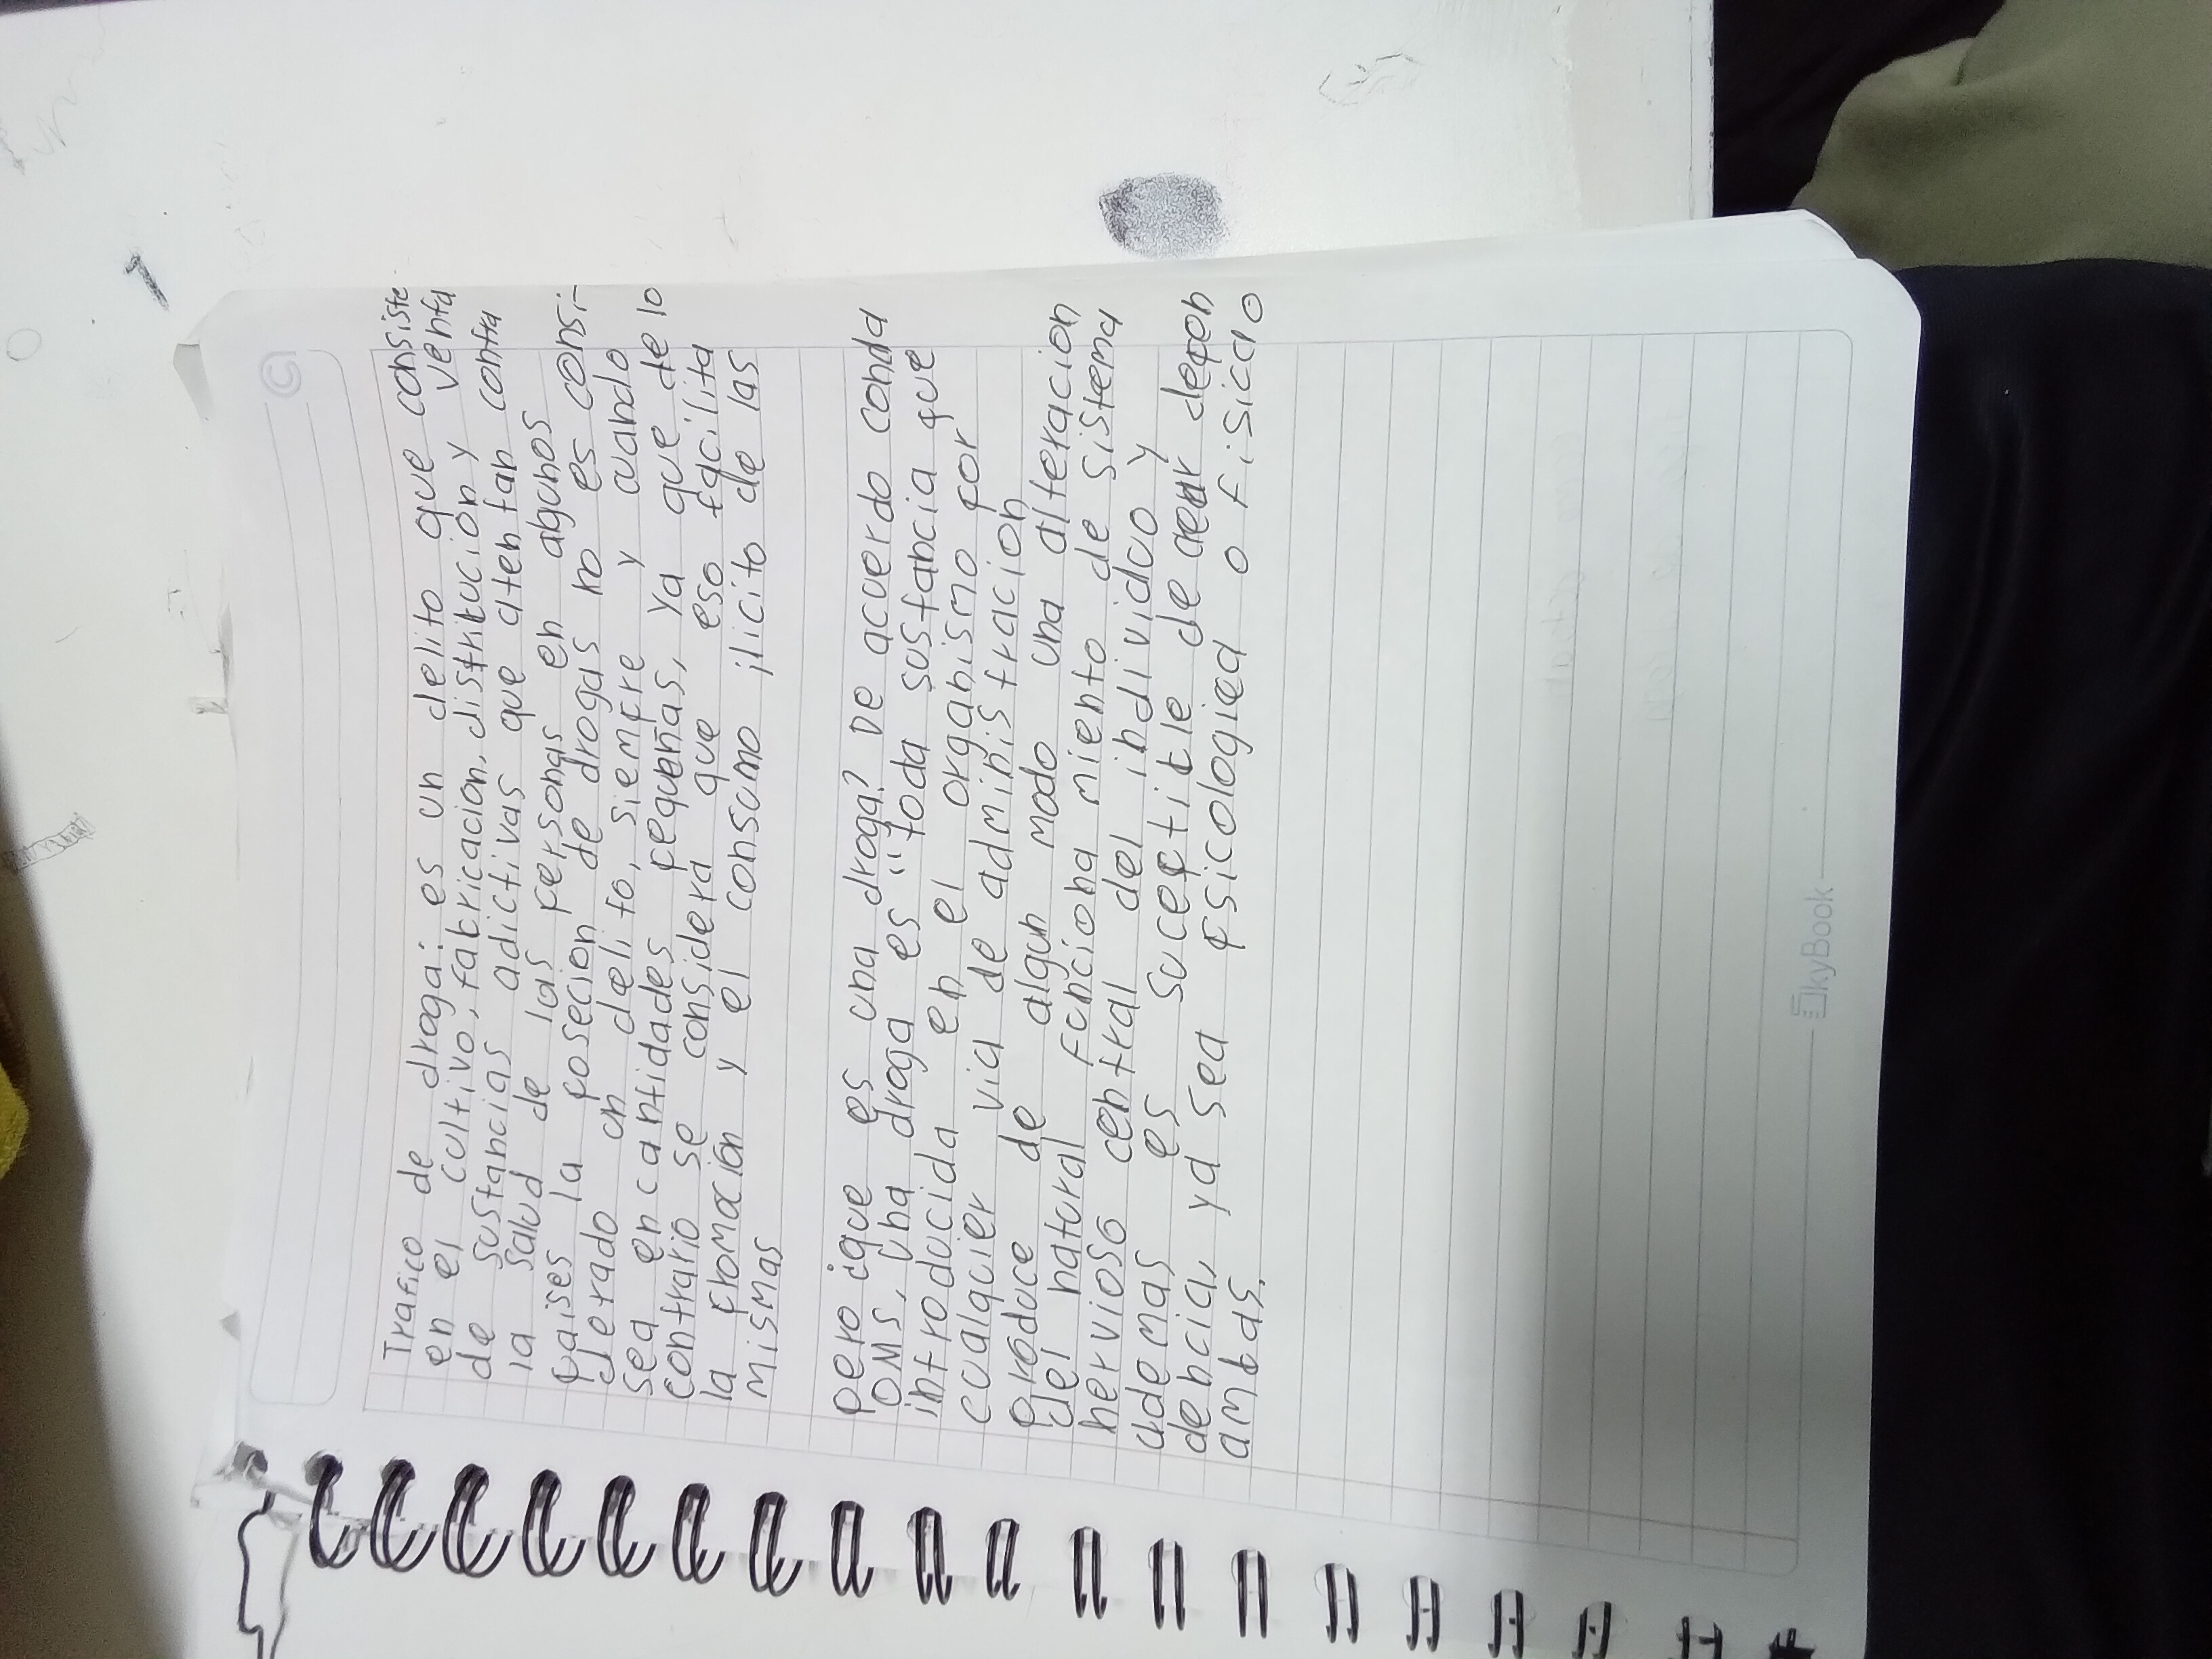 Trafico de droga: es un delito que consiste
en el cultivo, fabricacion, distribución y venta
de sustancias adictivas que atentan contra
la salud de las personas en algunos
paises la posecion de drogas no es consi-
derado un delito, siempre y cuando
sea en cantidades pequeñas, ya que de lo
contrario se considera que eso facilita
la promoción y el consumo ilicito de las
mismas
pero ¿que es una droga? De acuerdo con la
OMS, una droga es "toda sustancia que
introducida en el organismo por
cualquier via de administracion
produce de algun modo una alteracion
del natural funcionamiento de sistema
nervioso central del individuo y
ademas es suceptible de crear depen
dencia, ya sea psicologica o fisica o
ambas.
SkyBook